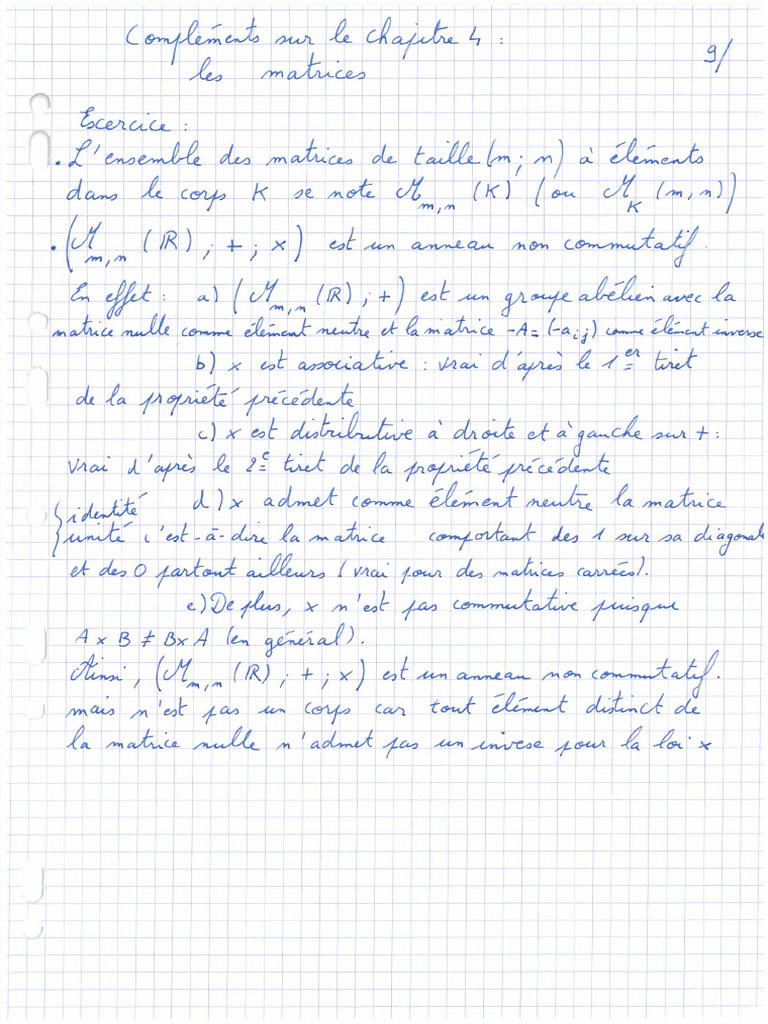 Compléments sur le chapitre 4 :
les matrices
9/
Exercice :
• L'ensemble des matrices de taille (m ; n) à éléments
dans le corps K se note M m,n (K) (ou M K (m,n))
• (M m,n (R) ; + ; x) est un anneau non commutatif.
En effet : a) (M m,n (R) ; +) est un groupe abélien avec la
matrice nulle comme élément neutre et la matrice -A = (-a i,j) comme élément inverse
b) x est associative : vrai d'après le 1er tiret
de la propriété précédente
c) x est distributive à droite et à gauche sur + :
vrai d'après le 2e tiret de la propriété précédente
d) x admet comme élément neutre la matrice
{ identité
unité c'est-à-dire la matrice comportant des 1 sur sa diagonale
et des 0 partout ailleurs (vrai pour des matrices carrées).
e) De plus, x n'est pas commutative puisque
A x B ≠ B x A (en général).
Ainsi, (M m,n (R) ; + ; x) est un anneau non commutatif.
mais n'est pas un corps car tout élément distinct de
la matrice nulle n'admet pas un invese pour la loi x